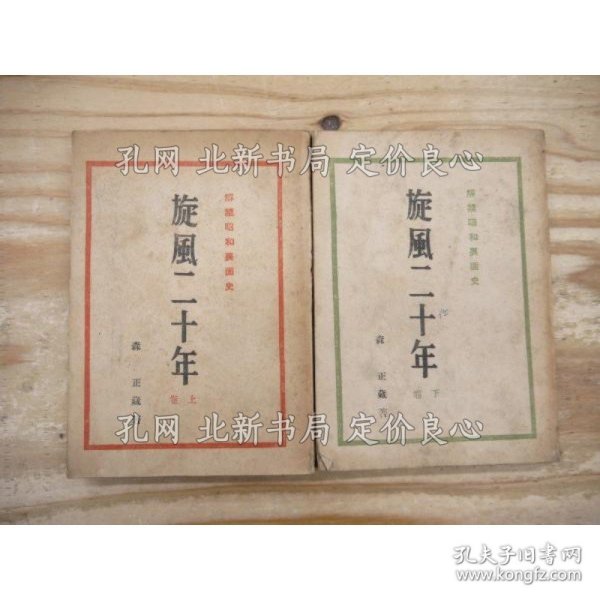 孔网 北新书局 定价良心
解禁昭和裏面史
旋風二十年
上巻
森正蔵著
解禁昭和裏面史
旋風二十年
下巻
森正蔵著
孔网 北新书局 定价良心
孔夫子旧书网
www.kongfz.com